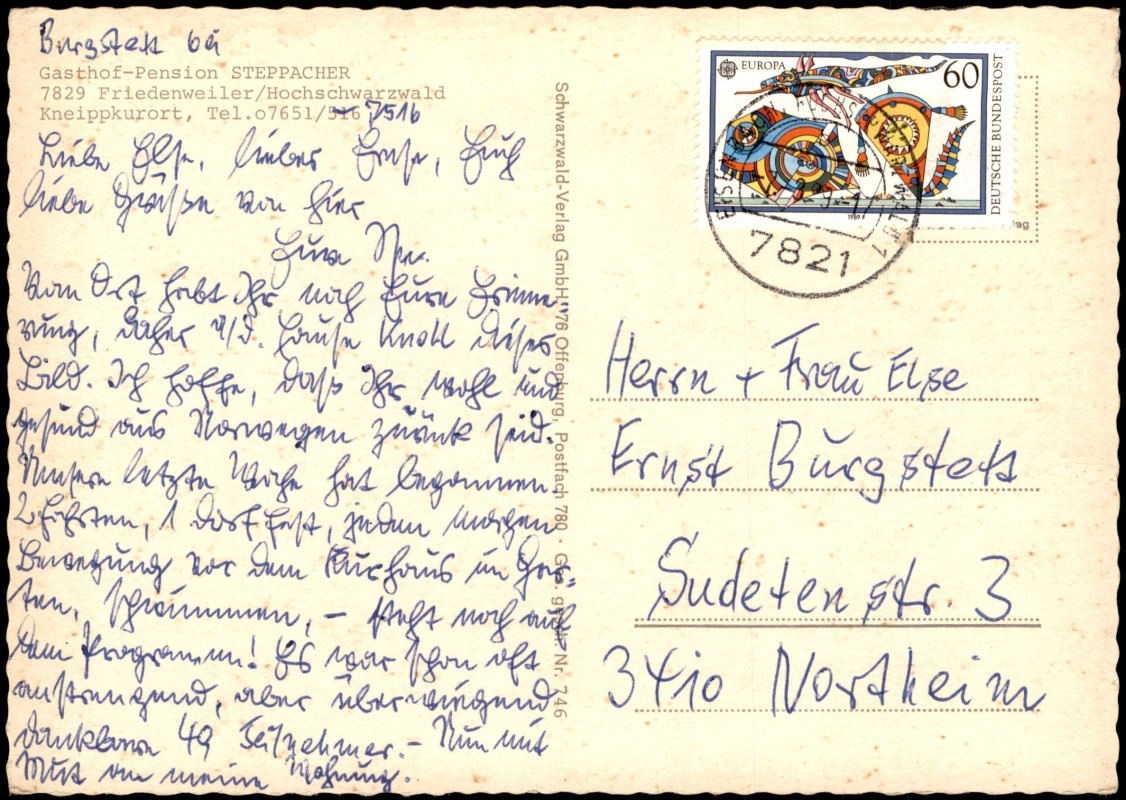 Burgstett bei
Gasthof-Pension STEPPACHER
7829 Friedenweiler/Hochschwarzwald
Kneippkurort, Tel.o7651/516 7516
Liebe Else, lieber Ernst, Euch
liebe Grüße von hier
Eure
Vom Ort habt Ihr noch Eure Erinne-
rung, daher a/d. Hause Knoll dieses
Bild. Ich hoffe, daß Ihr wohl und
gesund aus Norwegen zurück seid.
Unsere letzte Woche hat begonnen.
2 Fahrten, 1 Dorffest, jeden Morgen
Bewegung vor dem Kurhaus im Gar-
ten, schwimmen, – steht noch auf
dem Programm! Es war schon oft
anstrengend, aber überwiegend
dankbare 49 Teilnehmer. – Nun mit
Mut an meine Wohnung.
Schwarzwald-Verlag GmbH, 76 Offenburg, Postfach 780 · Ges. gesch. Nr. 746
EUROPA
60
DEUTSCHE BUNDESPOST
1989
7821
Herrn + Frau Else
Ernst Burgstett
Sudetenstr. 3
3410 Northeim